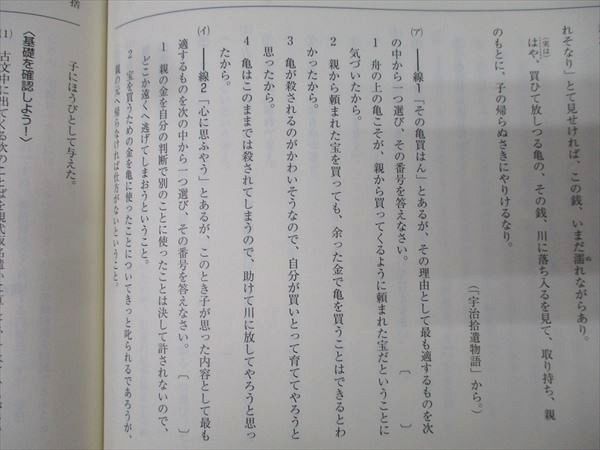 れそなり」とて見せければ、この銭、いまだ濡れながらあり。
ぬ
はや、買ひて放しつる亀の、その銭、川に落ち入るを見て、取り持ち、親
(実は)
のもとに、子の帰らぬさきにやりけるなり。
(「宇治拾遺物語」から。)
(ア) ――線1「その亀買はん」とあるが、その理由として最も適するものを次
の中から一つ選び、その番号を答えなさい。 〔 〕
1 舟の上の亀こそが、親から買ってくるように頼まれた宝だということに
気づいたから。
2 親から頼まれた宝を買っても、余った金で亀を買うことはできるとわ
かったから。
3 亀が殺されるのがかわいそうなので、自分が買いとって育ててやろうと
思ったから。
4 亀はこのままでは殺されてしまうので、助けて川に放してやろうと思っ
たから。
(イ) ――線2「心に思ふやう」とあるが、このとき子が思った内容として最も
適するものを次の中から一つ選び、その番号を答えなさい。 〔 〕
1 親の金を自分の判断で別のことに使ったことは決して許されないので、
どこか遠くへ逃げてしまおうということ。
2 宝を買うための金を亀に使ったことについてきっと叱られるであろうが、
親の元へ帰らなければ仕方がないということ。
捨
子にほうびとして与えた。
〈基礎を確認しよう!〉
(1) 古文中に出てくる次のことばを現代仮名遣いに直